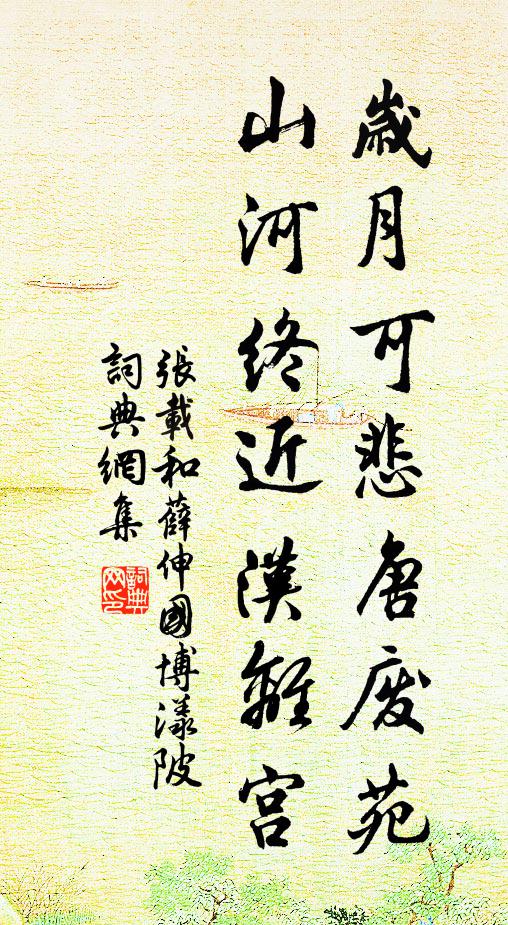 歲月可悲唐廢苑
山河終近漢離宮
張載和薛伸國博漾陂
詞典網集
詞典网印